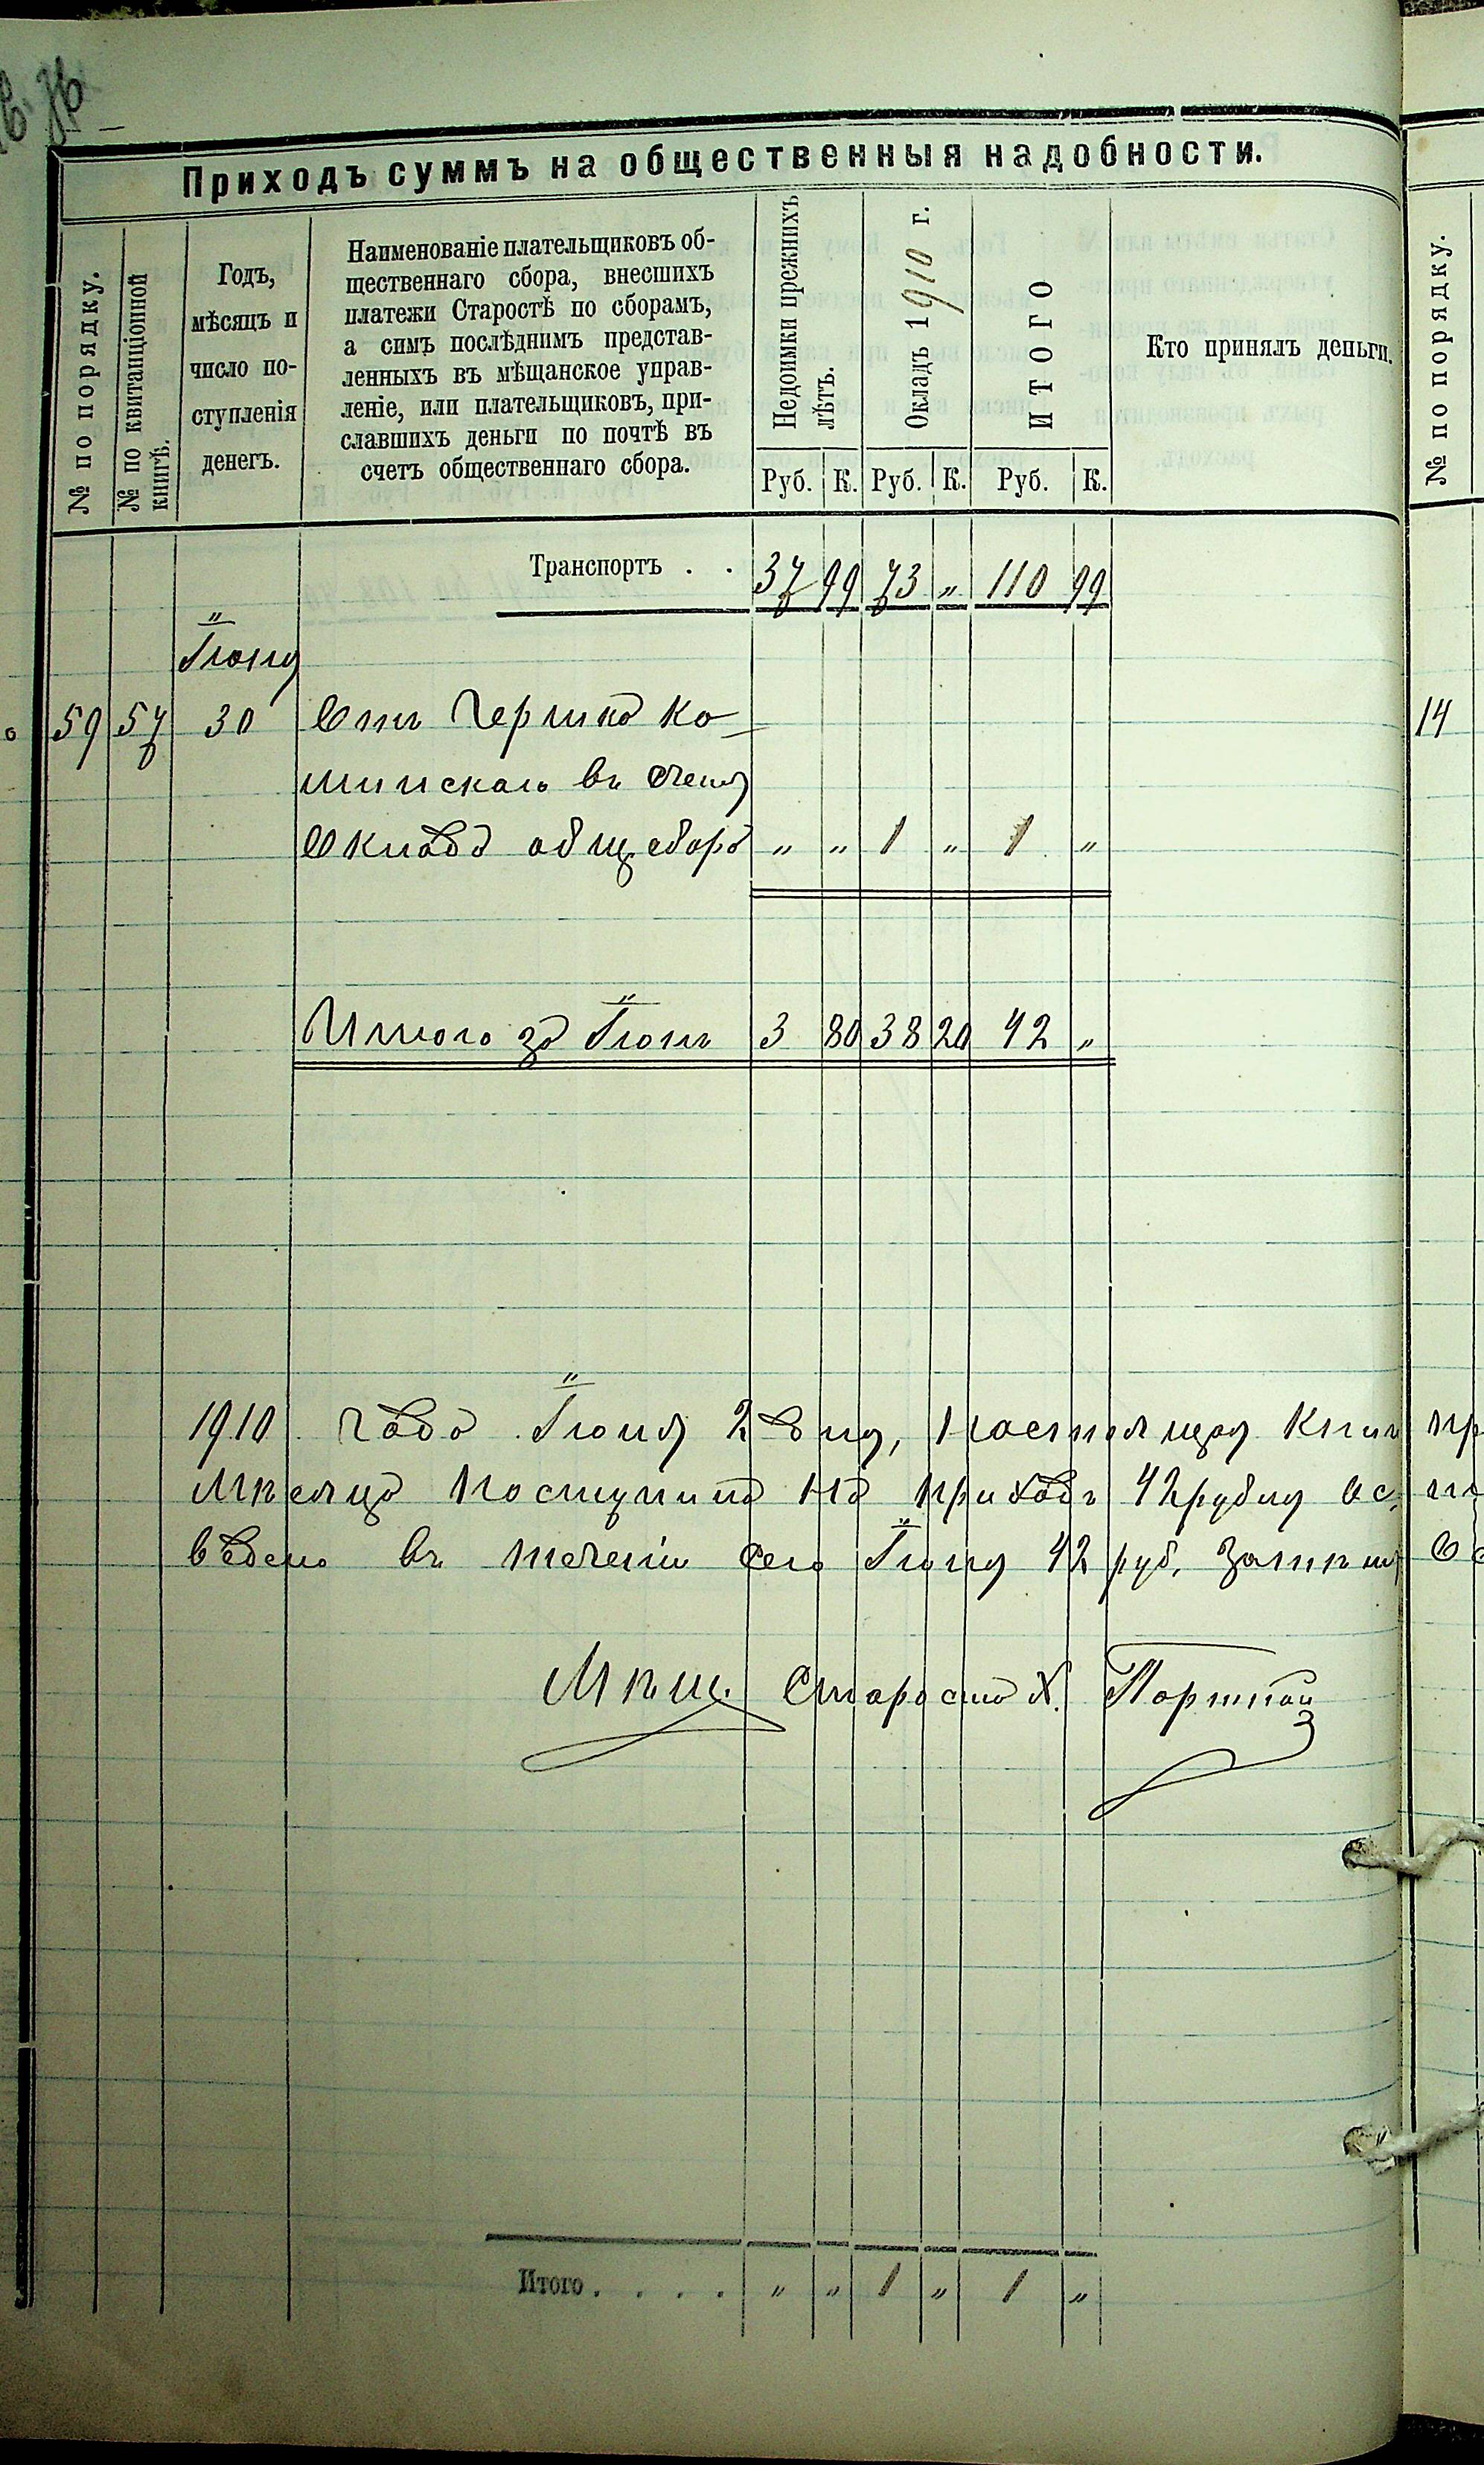 Приходъ суммъ на общественныя надобности.
№ по порядку.
№ по квитанціонной книгѣ.
Годъ, мѣсяцъ и число поступленія денегъ.
Наименованіе плательщиковъ об-
щественнаго сбора, внесшихъ
платежи Старостѣ по сборамъ,
а симъ послѣднимъ представ-
ленныхъ въ мѣщанское управ-
леніе, или плательщиковъ, при-
славшихъ деньги по почтѣ въ
счетъ общественнаго сбора.
Недоимки прежнихъ лѣтъ.
Окладъ 1910 г.
ИТОГО
Кто принялъ деньги.
Руб. К. Руб. К. Руб. К.
№ по порядку.
Транспортъ . . 37 99 73 „ 110 99
Іюня
59 57 30 Отъ Гершка Ко-
14
шинскаго въ счетъ
Оклада общ. сбора „ „ 1 „ 1 „
Итого за Іюнь 3 80 38 20 42 „
1910 года Іюня 2 дня, Настоящая Книга
Мѣсяца поступило на приходъ 42 рубля
въ теченіи сего Іюня 42 руб.
Мѣщ. Староста Х. Портной
Итого . . . . „ „ 1 „ 1 „